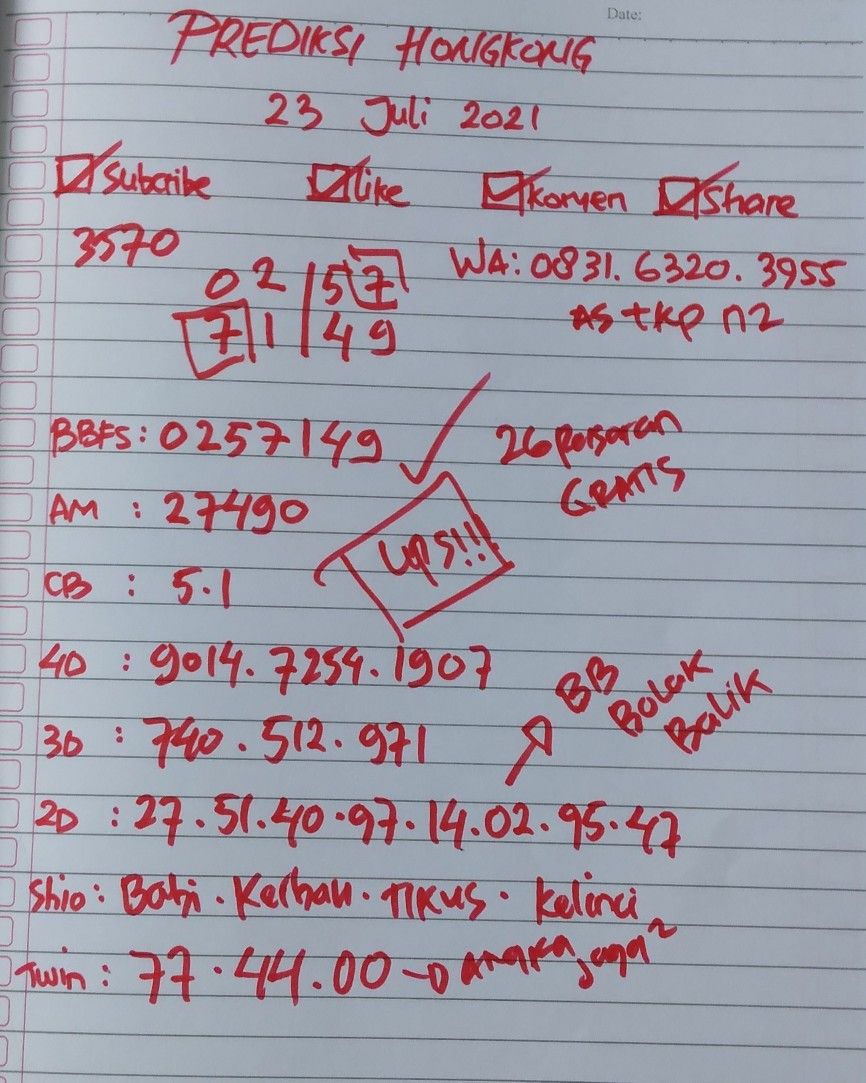 Date:
PREDIKSI HONGKONG
23 Juli 2021
Subcribe Like Komen Share
3570
02|57
71|49
WA: 0831.6320.3955
AS + KP n2
BBFS: 0257149
26 pasaran
GRATIS
AM : 27490
ups!!!
CB : 5.1
4D : 9014. 7254. 1907
BB
Bolak
Balik
3D : 740. 512. 971
2D : 27. 51. 40. 97. 14. 02. 95. 47
Shio: Babi. Kerbau. Tikus. Kelinci
Twin: 77. 44. 00 → Angka jaga²